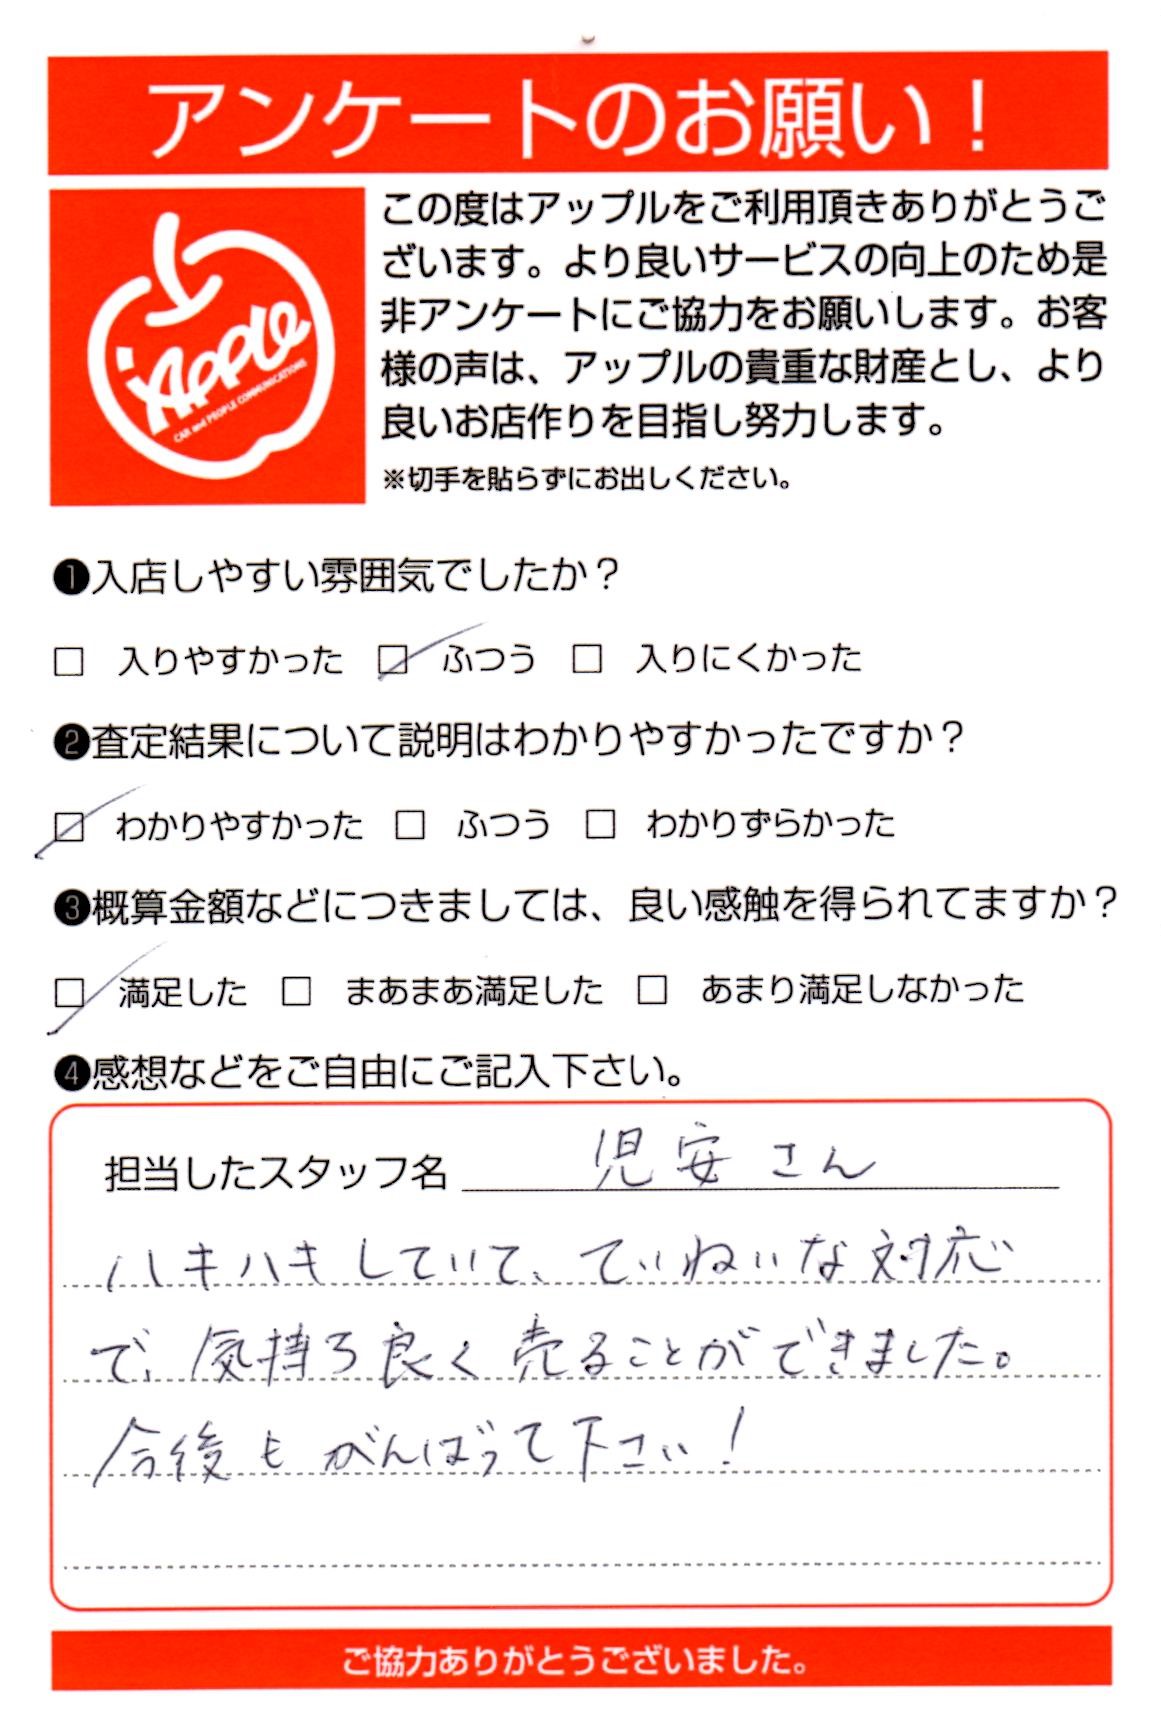 アンケートのお願い！
Apple
CAR and PEOPLE COMMUNICATIONS
この度はアップルをご利用頂きありがとうご
ざいます。より良いサービスの向上のため是
非アンケートにご協力をお願いします。お客
様の声は、アップルの貴重な財産とし、より
良いお店作りを目指し努力します。
※切手を貼らずにお出しください。
❶入店しやすい雰囲気でしたか？
□ 入りやすかった ☑ ふつう □ 入りにくかった
❷査定結果について説明はわかりやすかったですか？
☑ わかりやすかった □ ふつう □ わかりずらかった
❸概算金額などにつきましては、良い感触を得られてますか？
☑ 満足した □ まあまあ満足した □ あまり満足しなかった
❹感想などをご自由にご記入下さい。
担当したスタッフ名 児安さん
ハキハキしていて、ていねいな対応
で、気持ち良く売ることができました。
今後もがんばって下さい！
ご協力ありがとうございました。